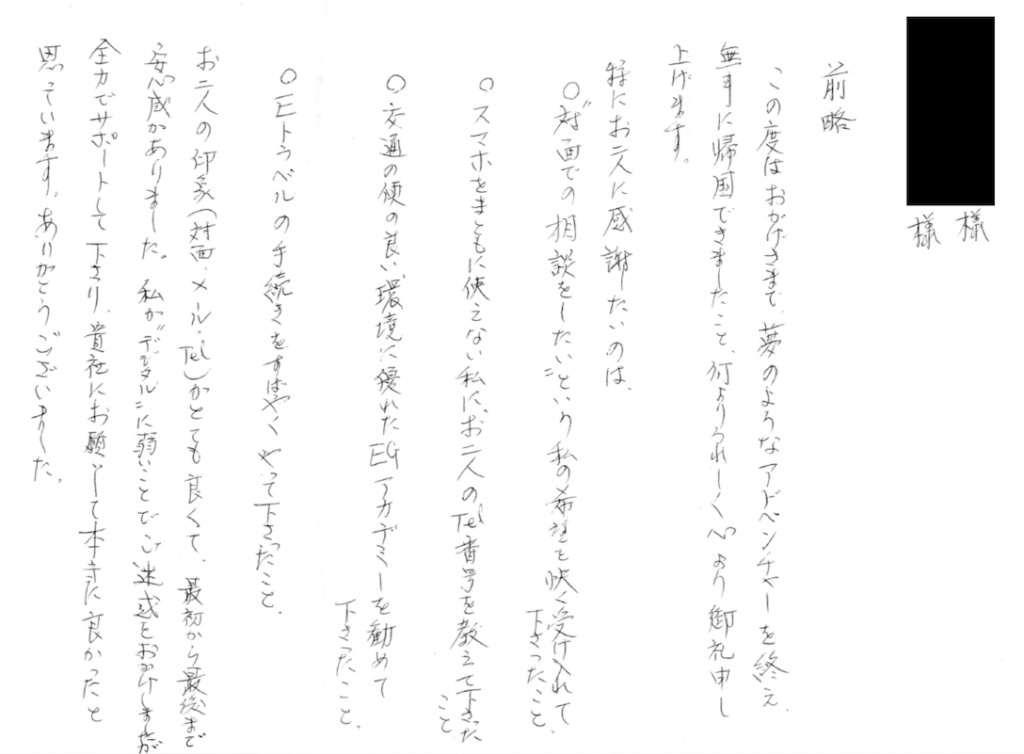 様
様
前略
この度はおかげさまで、夢のようなアドベンチャーを終え、
無事に帰国できましたこと、何よりうれしく心より御礼申し
上げます。
特にお二人に感謝したいのは、
○〝対面での相談をしたい〟という私の希望を快く受け入れて
下さったこと、
○スマホをまともに使えない私に、お二人のTel番号を教えて下さった
こと
○交通の便の良い環境に優れたEGアカデミーを勧めて
下さったこと、
○Eトラベルの手続きをすばやくやって下さったこと、
お二人の印象(対面、メール・Tel)がとても良くて、最初から最後まで
安心感がありました。私が〝デジタル〟に弱いことでご迷惑をおかけしましたが
全力でサポートして下さり、貴社にお願いして本当に良かったと
思っています。ありがとうございました。